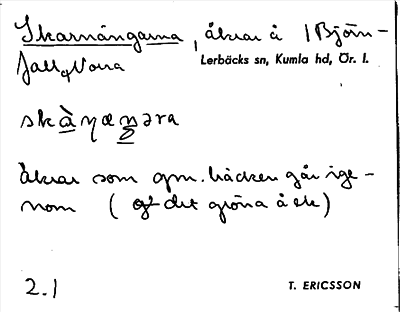 Skarnängarna, åkrar å 1 Björn-
fall, Norra Lerbäcks sn, Kumla hd, Ör. l.
skàŋænəra
Åkrar som gm. bäcken går ige-
nom ( det gröna å ek)
2.1 T. ERICSSON